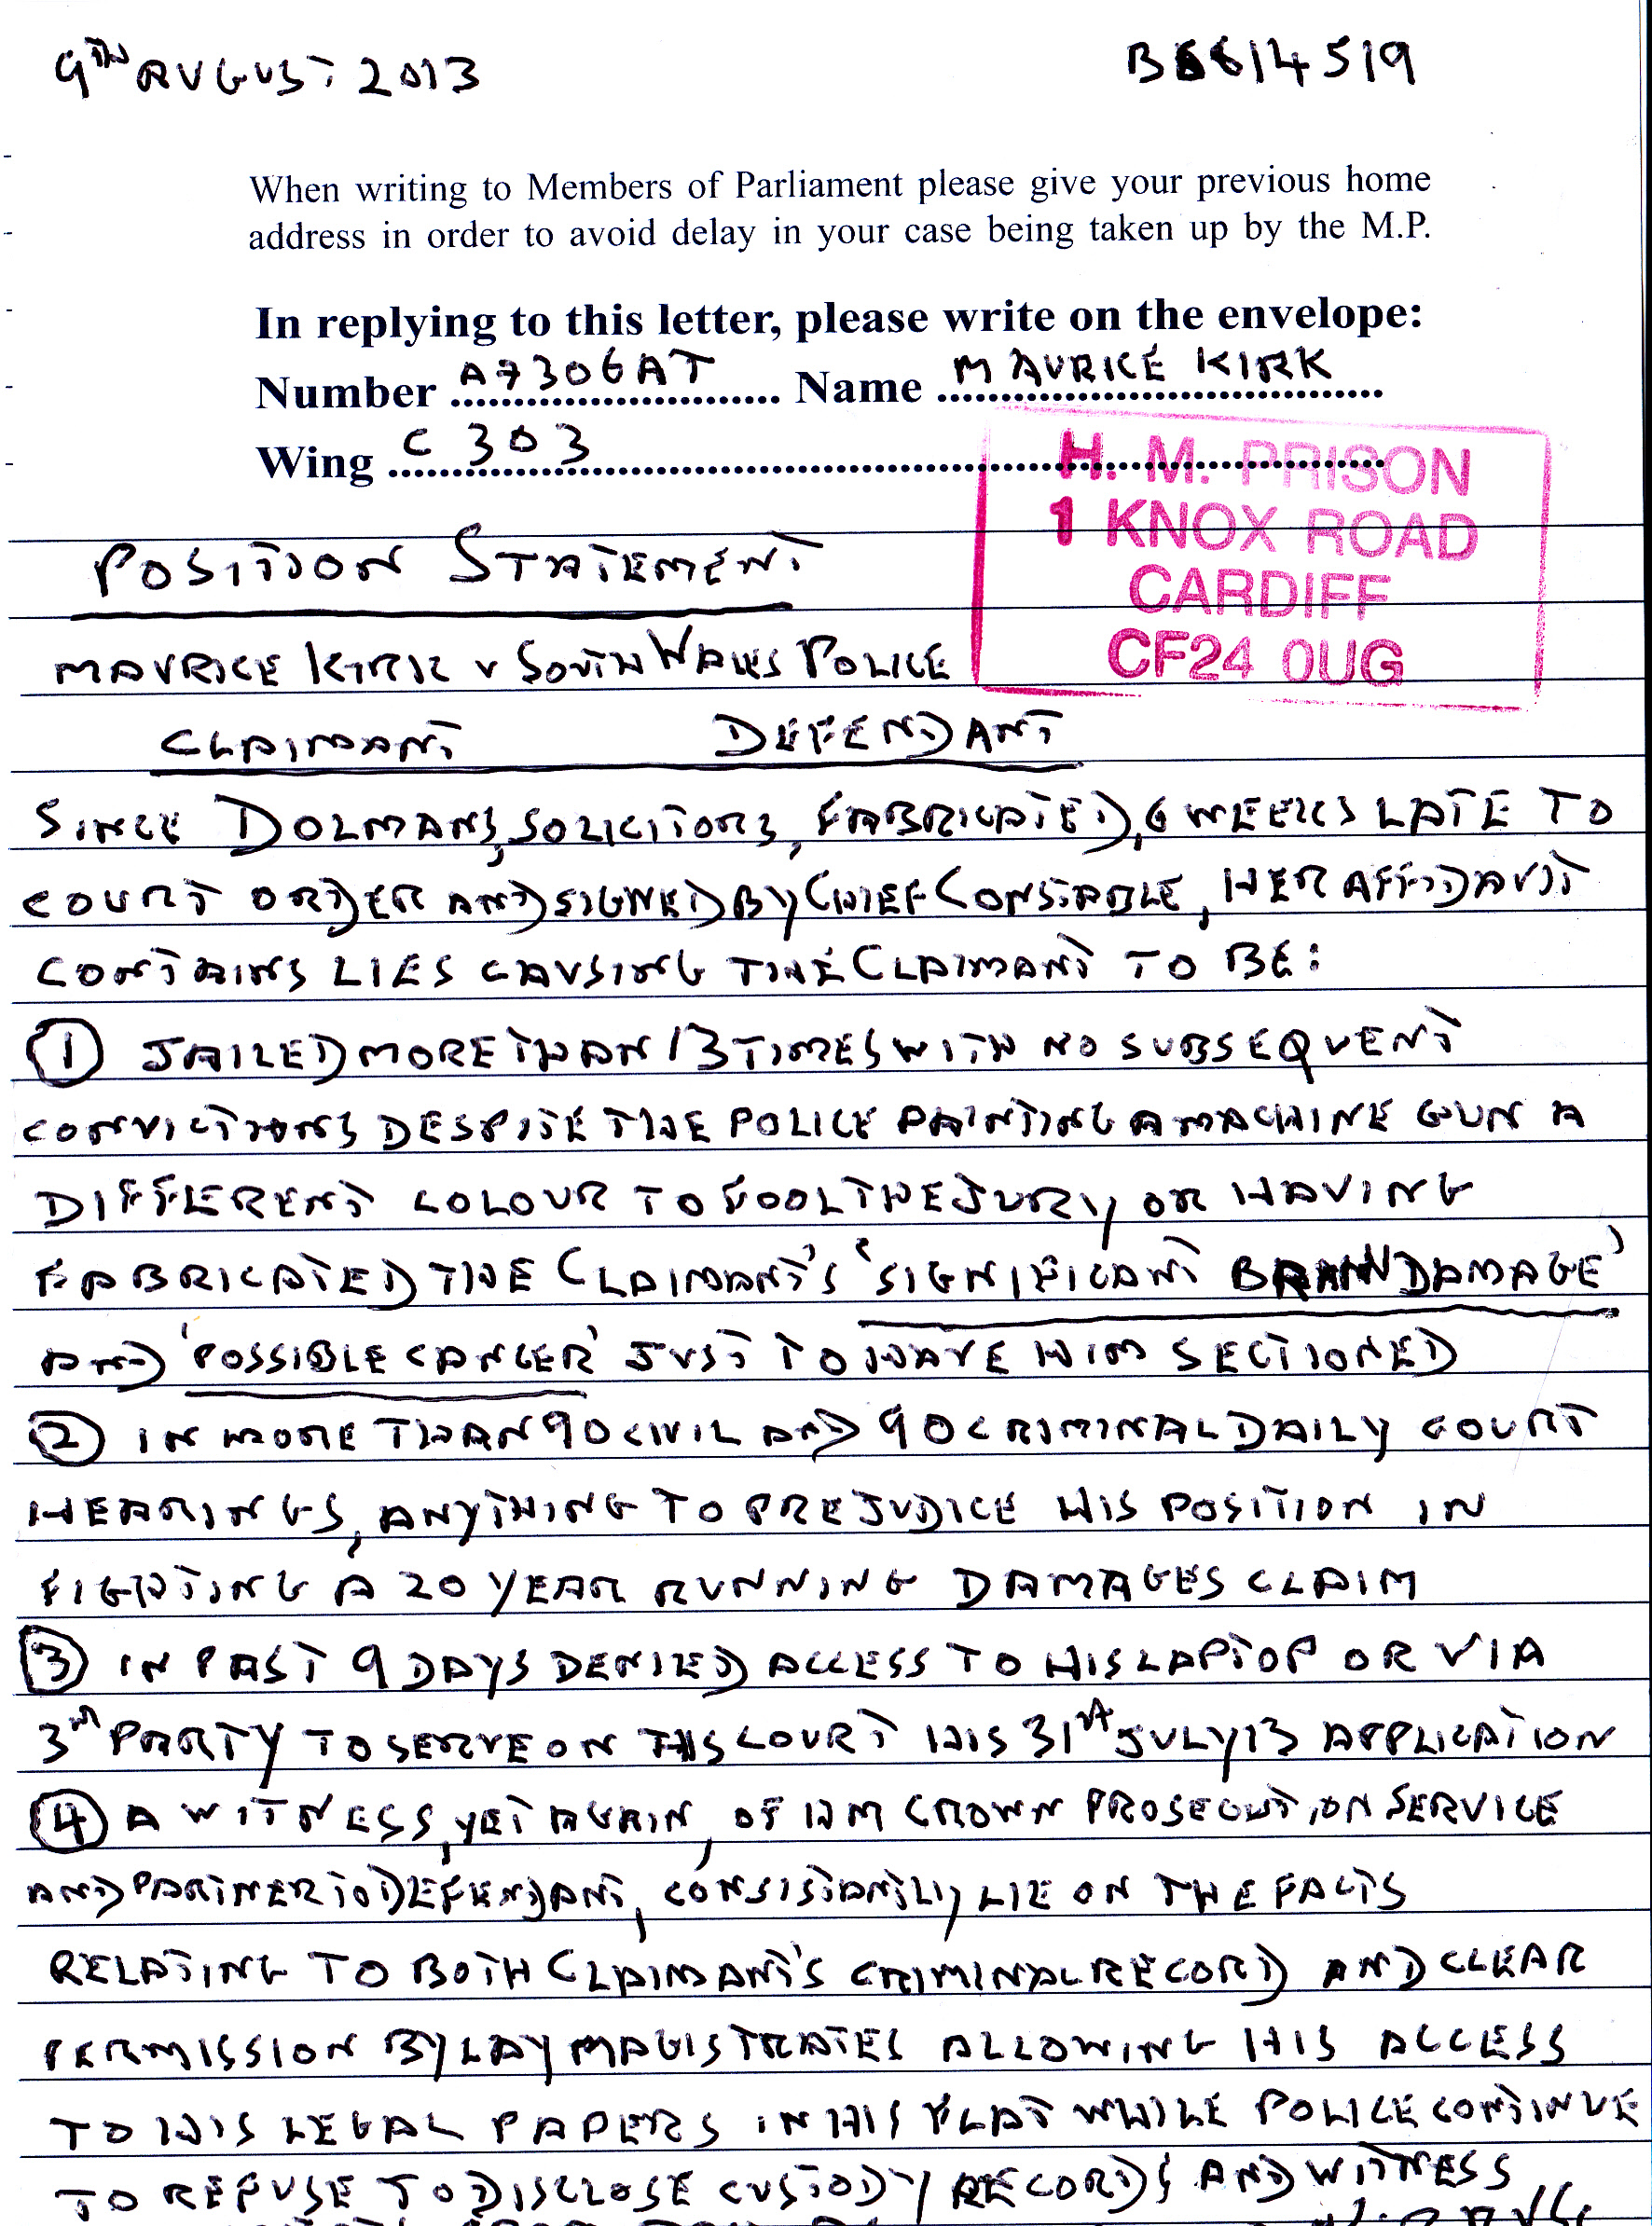 9TH AUGUST 2013
BS614519
When writing to Members of Parliament please give your previous home
address in order to avoid delay in your case being taken up by the M.P.
In replying to this letter, please write on the envelope:
Number A7306AT Name MAURICE KIRK
Wing C 303
H. M. PRISON
1 KNOX ROAD
CARDIFF
CF24 0UG
POSITION STATEMENT
MAURICE KIRK V SOUTH WALES POLICE
CLAIMANT DEFENDANT
SINCE DOLMANS, SOLICITORS, FABRICATED, 6 WEEKS LATE TO
COURT ORDER AND SIGNED BY CHIEF CONSTABLE, HER AFFIDAVIT
CONTAINS LIES CAUSING THE CLAIMANT TO BE:
① JAILED MORE THAN 13 TIMES WITH NO SUBSEQUENT
CONVICTIONS DESPITE THE POLICE PAINTING A MACHINE GUN A
DIFFERENT COLOUR TO FOOL THE JURY OR HAVING
FABRICATED THE CLAIMANT'S 'SIGNIFICANT BRAIN DAMAGE'
AND 'POSSIBLE CANCER' JUST TO HAVE HIM SECTIONED
② IN MORE THAN 90 CIVIL AND 90 CRIMINAL DAILY COURT
HEARINGS, ANYTHING TO PREJUDICE HIS POSITION IN
FIGHTING A 20 YEAR RUNNING DAMAGES CLAIM
③ IN PAST 9 DAYS DENIED ACCESS TO HIS LAPTOP OR VIA
3RD PARTY TO SERVE ON THIS COURT HIS 31ST JULY 13 APPLICATION
④ A WITNESS, YET AGAIN, OF HM CROWN PROSECUTION SERVICE
AND PARTNER TO DEFENDANT, CONSISTANTLY LIE ON THE FACTS
RELATING TO BOTH CLAIMANT'S CRIMINAL RECORD AND CLEAR
PERMISSION BY LAY MAGISTRATES ALLOWING HIS ACCESS
TO HIS LEGAL PAPERS IN HIS FLAT WHILE POLICE CONTINUE
TO REFUSE TO DISCLOSE CUSTODY RECORDS AND WITNESS